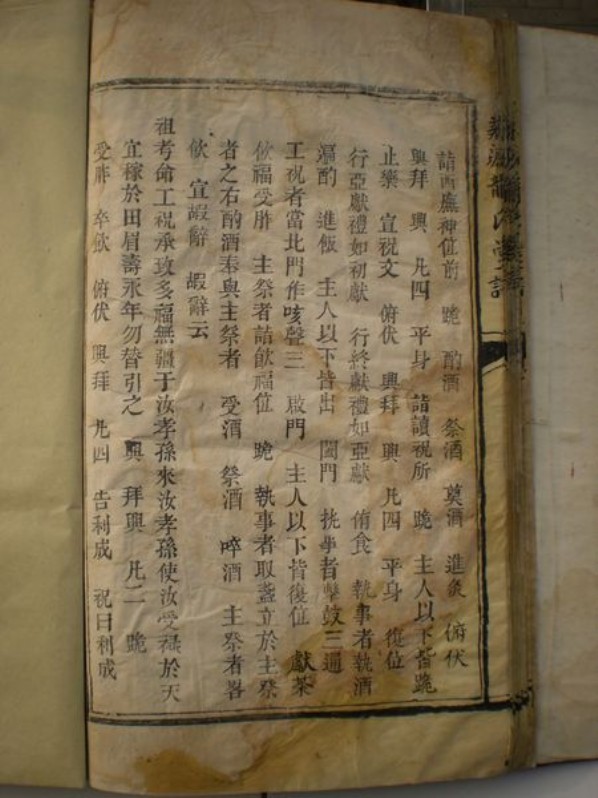 詣西廡神位前 跪 酌酒 祭酒 奠酒 進炙 俯伏
興拜 興 凡四 平身 詣讀祝所 跪 主人以下皆跪
止樂 宣祝文 俯伏 興拜 興 凡四 平身 復位
行亞獻禮如初獻 行終獻禮如亞獻 侑食 執事者執酒
滿酌 進飯 主人以下皆出 闔門 執事者擊鼓三通
工祝者當北門作咳聲三 啟門 主人以下皆復位 獻茶
飲福受胙 主祭者詣飲福位 跪 執事者取盞立於主祭
者之右酌酒奉與主祭者 受酒 祭酒 啐酒 主祭者畧
飲 宣嘏辭 嘏辭云
祖考命工祝承致多福無疆于汝孝孫來汝孝孫使汝受祿於天
宜稼於田眉壽永年勿替引之 興 拜興 凡二 跪
受胙 卒飲 俯伏 興拜 凡四 告利成 祝曰利成